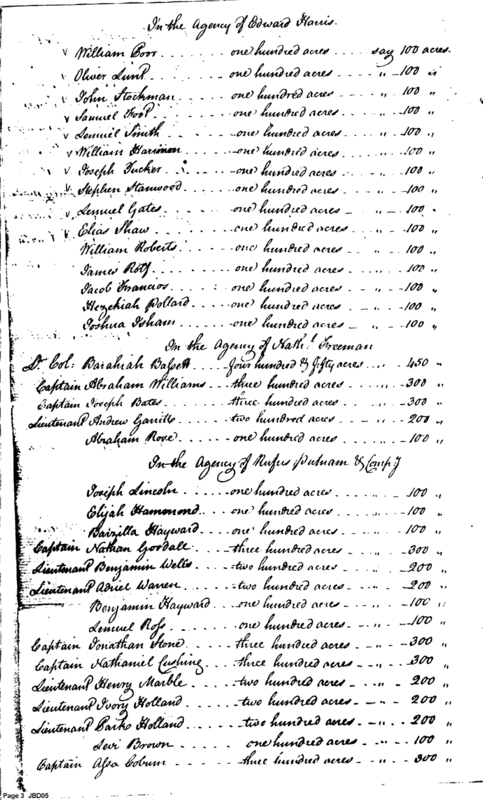 In the Agency of Edward Harris.
v William Poor . . . . . one hundred acres . . . . say 100 acres.
v Oliver Lunt . . . . . one hundred acres . . . . „ - 100 „
v John Stockman . . . . one hundred acres . . . . „ - 100 „
v Samuel Foot . . . . . one hundred acres . . . . „ - 100 „
v Lemuel Smith . . . . one hundred acres . . . . „ - 100 „
v William Hariman . . . one hundred acres . . . . „ - 100 „
v Joseph Tucker . . . . one hundred acres . . . . „ - 100 „
v Stephen Stanwood . . . one hundred acres . . . . „ - 100 „
v Lemuel Gates . . . . one hundred acres . . . . „ - 100 „
v Elias Shaw . . . . . one hundred acres . . . . „ - 100 „
William Roberts . . . . one hundred acres . . . . „ - 100 „
James . . . . . one hundred acres . . . . „ - 100 „
Jacob Francios . . . . one hundred acres . . . . „ - 100 „
Hezekiah Pollard . . . . one hundred acres . . . . „ - 100 „
Joshua Isham . . . . . one hundred acres . . . . „ - 100 „
In the Agency of Nathl. Freeman
Lt. Col: Barahiah Bassett . . four hundred & fifty acres . . „ . 450 „
Captain Abraham Williams . . three hundred acres . . . „ - 300 „
Captain Joseph Bates . . . . three hundred acres . . . „ - 300 „
Lieutenant Andrew Garritt . . . two hundred acres . . . „ 200 „
Abraham Rose . . . . one hundred acres . . . . „ - 100 „
In the Agency of Rufus Putnam & Compy
Joseph Lincoln . . . . one hundred acres . . . . „ - 100 „
Elijah Hammond . . . one hundred acres . . . . „ - 100 „
Barzilla Hayward . . . one hundred acres . . . . „ - 100 „
Captain Nathan Goodale . . . three hundred acres . . . „ - 300 „
Lieutenant Benjamin Wells . . . two hundred acres . . . „ - 200 „
Lieutenant Adriel Warren . . . two hundred acres . . . „ - 200 „
Benjamin Hayward . . one hundred acres . . . „ - 100 „
Lemuel Ross . . . . one hundred acres . . . „ - 100 „
Captain Jonathan Stone . . . three hundred acres . . „ - 300 „
Captain Nathaniel Cushing . . . three hundred acres . . „ - 300 „
Lieutenant Henry Marble . . . two hundred acres . . „ - 200 „
Lieutenant Ivory Holland . . . two hundred acres . . „ - 200 „
Lieutenant Parks Holland . . . two hundred acres . . „ - 200 „
Levi Brown . . . . one hundred acres . . „ - 100 „
Captain Asa Coburn . . . . three hundred acres . . „ - 300 „
Page 3 JBD05